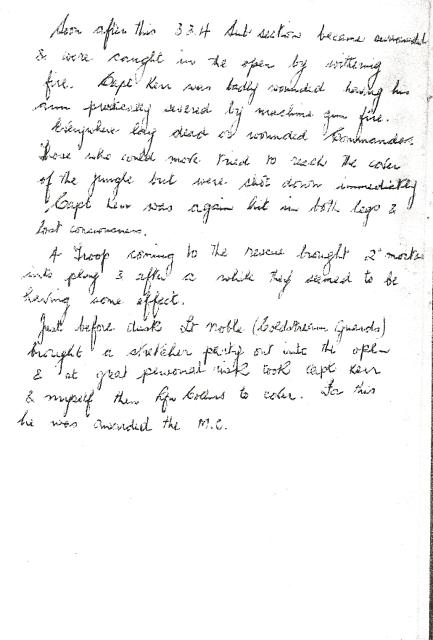 Soon after this 3 3.H Sub section became surrounded
& were caught in the open by withering
fire. Capt Kerr was badly wounded having his
arm practically severed by machine gun fire.
Everywhere lay dead or wounded Commandos.
Those who could move tried to reach the cover
of the jungle but were shot down immediately
Capt Kerr was again hit in both legs &
lost consciousness.
A Troop coming to the rescue brought 2" mortars
into play & after a while they seemed to be
having some effect.
Just before dusk Lt Noble (Coldstream Guards)
brought a stretcher party out into the open
& at great personal risk took Capt Kerr
& myself then Rfn Collins to cover. For this
he was awarded the M.C.